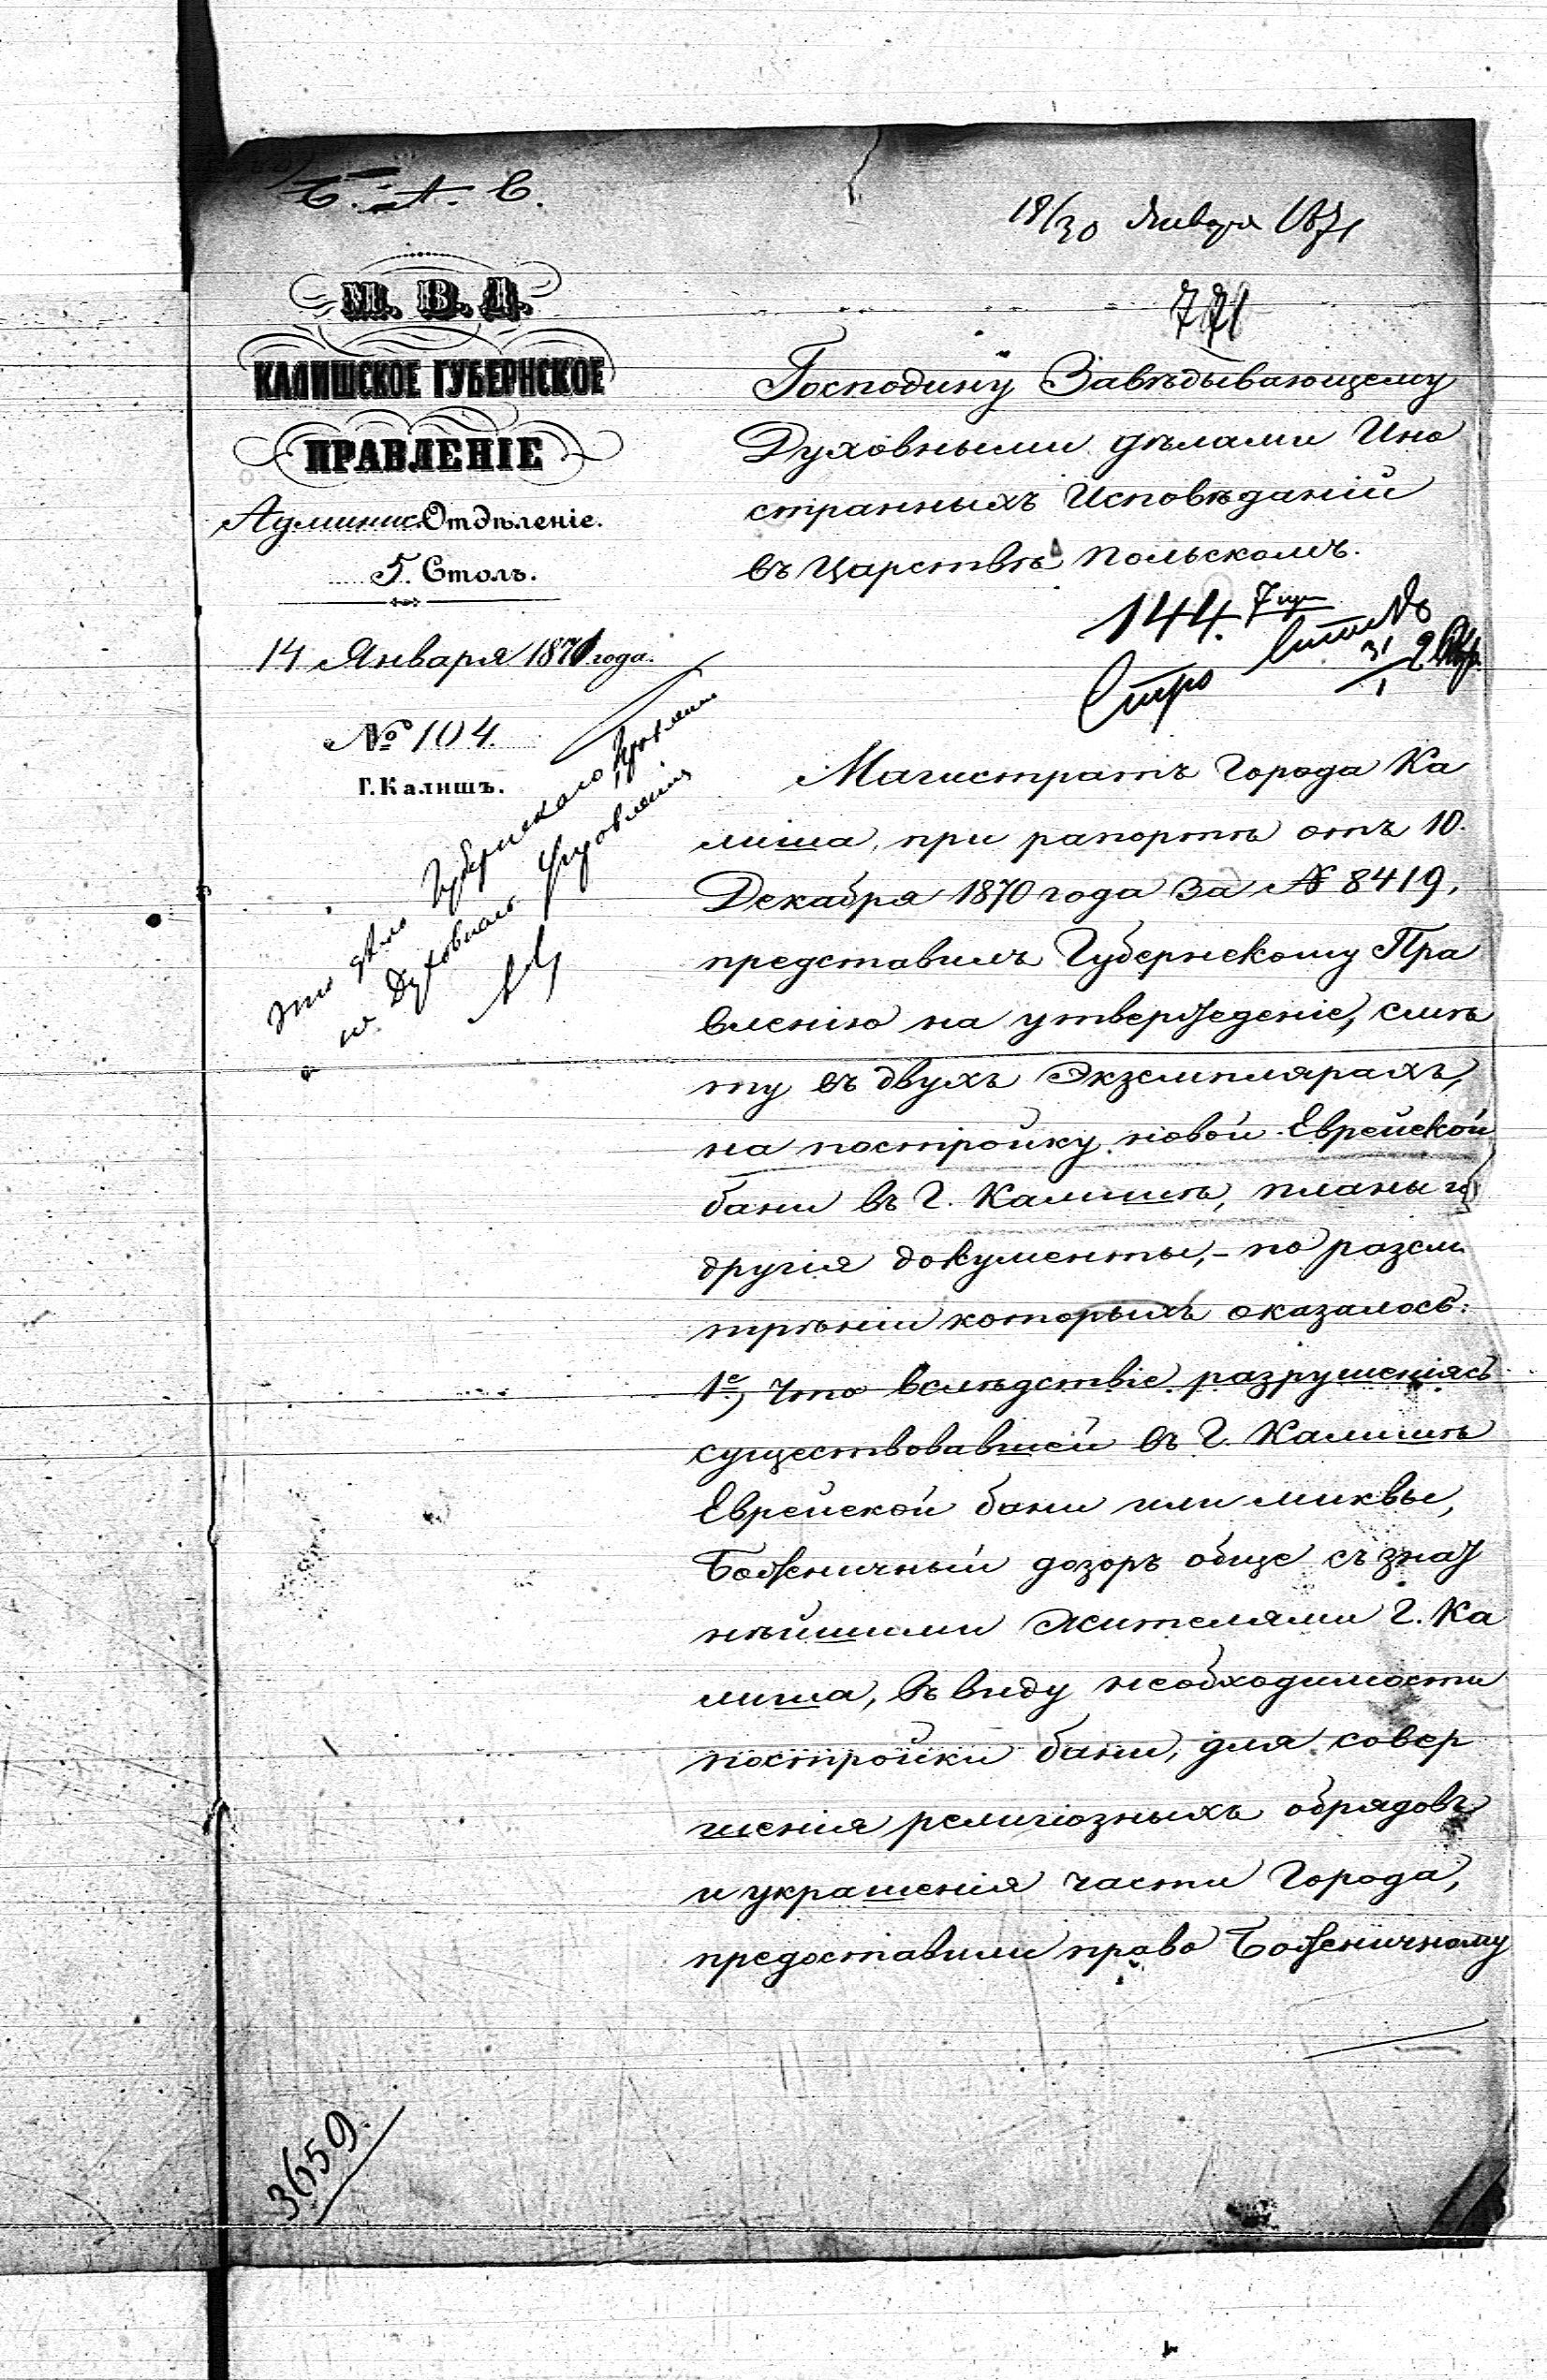 18/30 Января 1871
771
М. В. Д.
КАЛИШСКОЕ ГУБЕРНСКОЕ
ПРАВЛЕНІЕ
Админис. Отдѣленіе.
5. Столъ.
14 Января 1871 года.
№ 104.
Г. Калишъ.
Господину Завѣдывающему
Духовными дѣлами Ино
странныхъ Исповѣданій
въ Царствѣ Польскомъ.
144.
это дѣло Губернскаго Правленія
а не Духовнаго Управленія
Магистратъ Города Ка
лиша, при рапортѣ отъ 10.
Декабря 1870 года за № 8419,
представилъ Губернскому Пра
вленію на утвержденіе, смѣ
ту въ двухъ Экземплярахъ,
на постройку новой Еврейской
бани въ Г. Калишѣ, планы и
другія документы, - по разсм
трѣніи которыхъ оказалось:
1е, Что вслѣдствіе разрушенія
существовавшей въ Г. Калишѣ
Еврейской бани или миквы,
Боженичный дозоръ обще съ знат
нѣйшими Жителями Г. Ка
лиша, въ виду необходимости
постройки бани, для совер
шенія религіозныхъ обрядовъ
и украшенія части Города,
предоставили право Боженичному
3659.